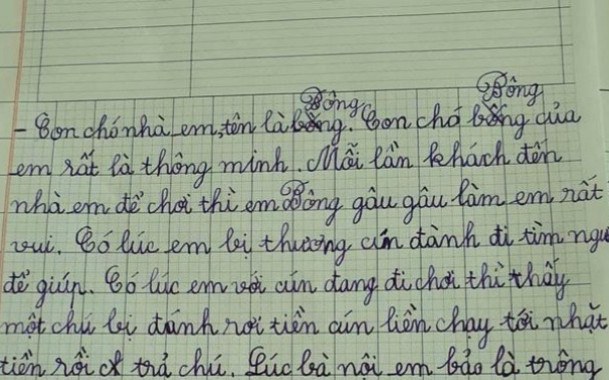 - Con chó nhà em, tên là Bông. Con chó Bông của
em rất là thông minh. Mỗi lần khách đến
nhà em để chơi thì em Bông gâu gâu làm em rất
vui. Có lúc em bị thương cún đành đi tìm ngư
để giúp. Có lúc em với cún đang đi chơi thì thấy
một chú bị đánh rơi tiền cún liền chạy tới nhặt
tiền rồi trả chú. Lúc bà nội em bảo là trông